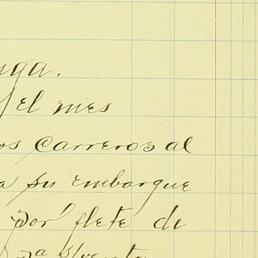 el mes
os carreros al
a su embarque
por flete de